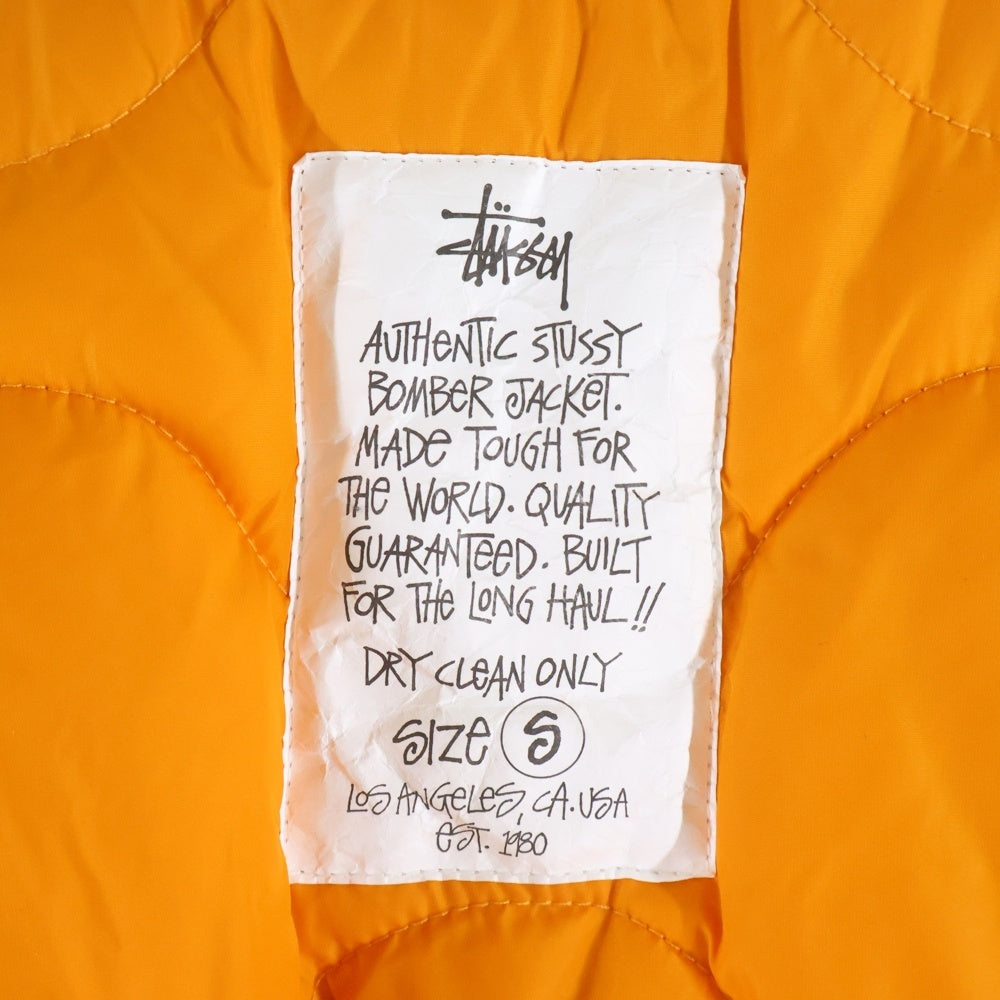 Stüssy
AUTHeNTIC STUSSY
BOMBER JACKET.
MADe TOUGH FOR
THe WORLD. QUALITY
GUARANTeeD. BUILT
FOR THe LONG HAUL!!
DRY CLeAN ONLY
SIZe S
LOS ANGeLeS, CA. USA
eST. 1980